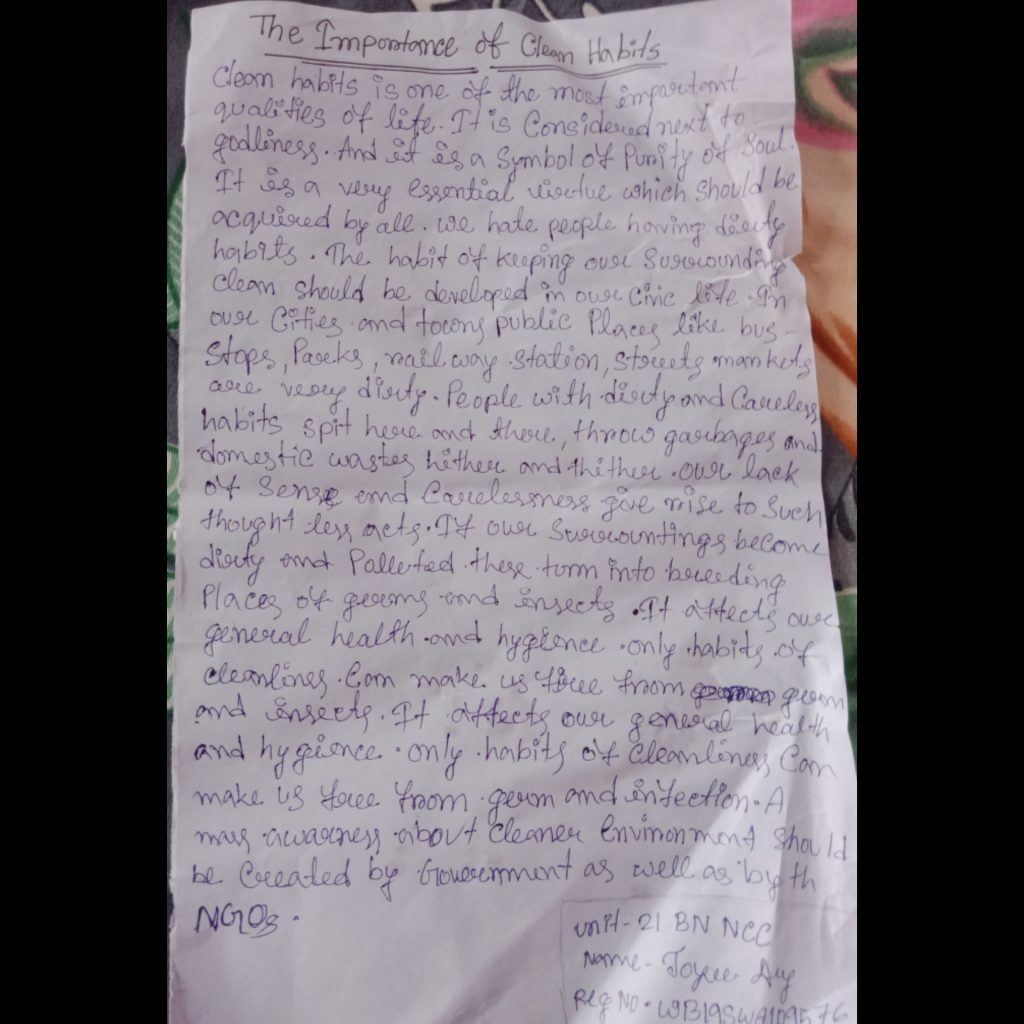 The Importance of Clean Habits
Clean habits is one of the most important
qualities of life. It is Considered next to
godliness. And it is a Symbol of Purity of Soul.
It is a very essential virtue which should be
acquired by all. we hate people having dirty
habits. The habit of keeping our Surrounding
clean should be developed in our Civic life. In
our Cities and towns public Places like bus-
Stops, Parks, railway station, streets markets
are very dirty. People with dirty and Careless
habits spit here and there, throw garbages and
domestic wastes hither and thither. our lack
of Sense and Carelessness give rise to Such
thought less acts. If our Surrountings become
dirty and Polleuted these turn into breeding
Places of germs and insects. It affects our
general health and hygience. only habits of
cleanlines. Can make us free from germ
and insects. It affects our general health
and hygience. only habits of Cleanliness Can
make us free from germ and infection. A
mass awarness about cleaner Environment Should
be Created by Government as well as by th
NGOs.
Unit- 21 BN NCC
Name- Joyee
Reg No. WB19SWA109576